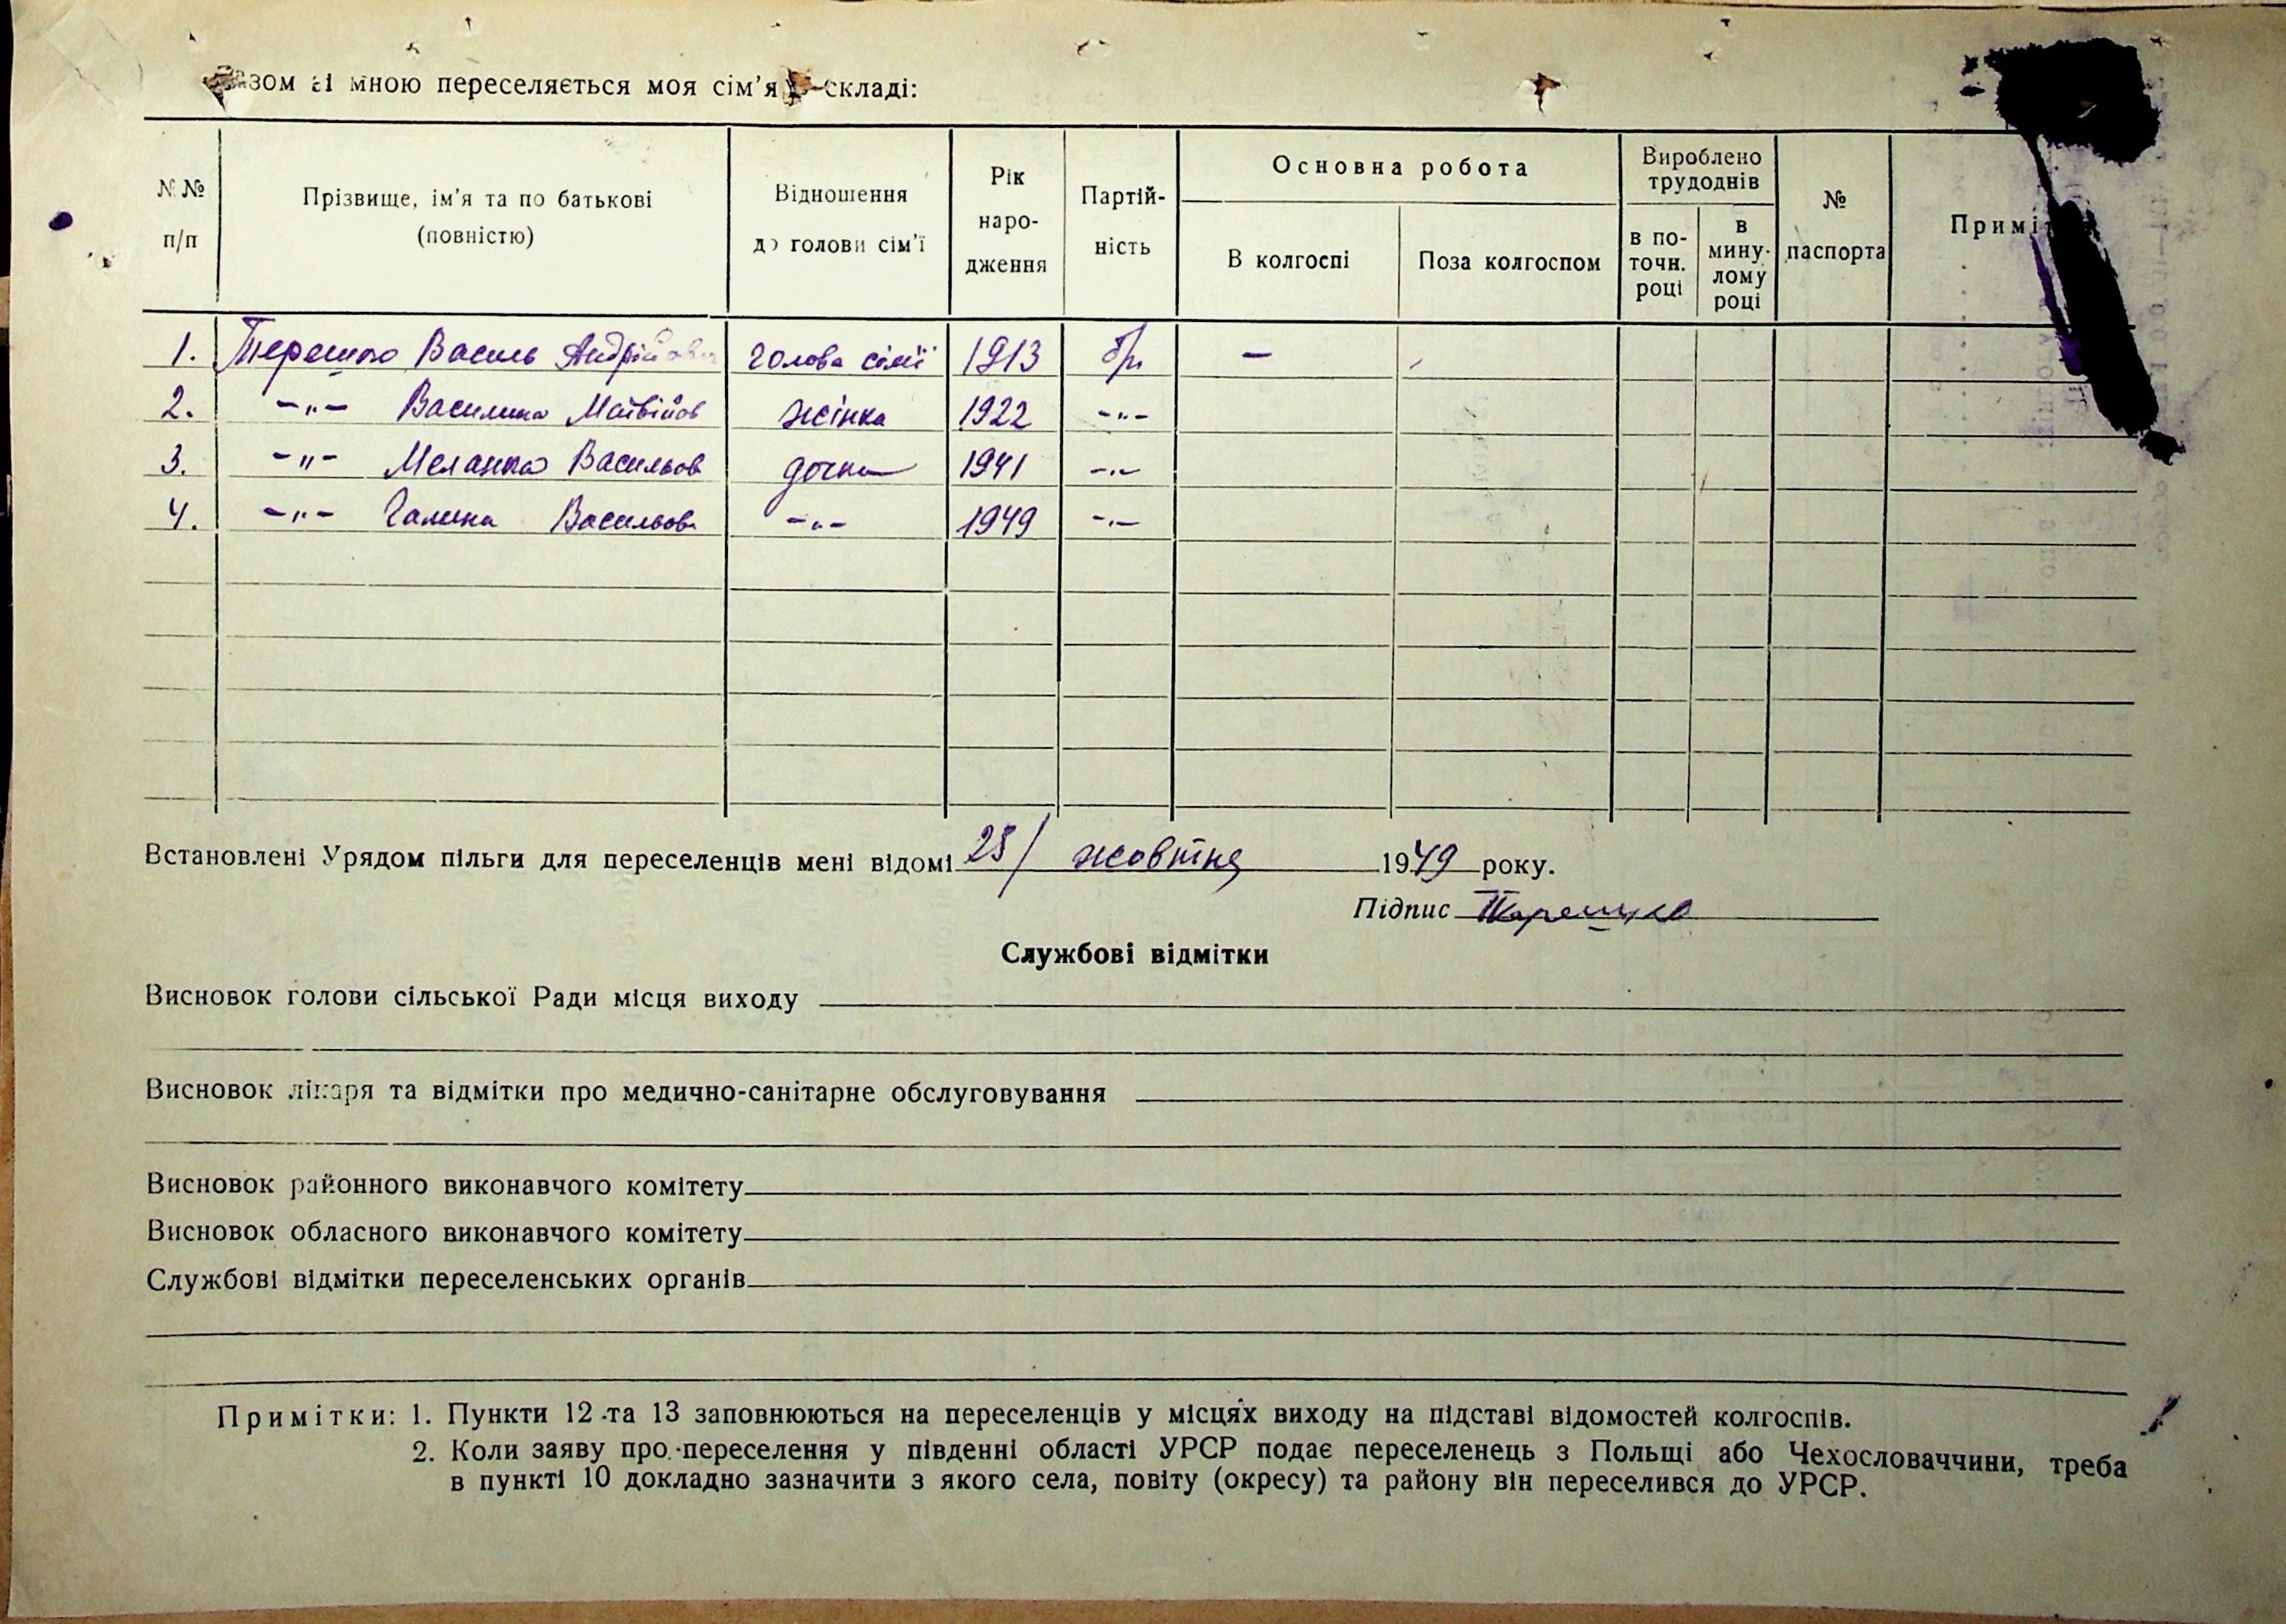 Разом зі мною переселяється моя сім'я у складі:
№№ п/п
Прізвище, ім'я та по батькові (повністю)
Відношення до голови сім'ї
Рік народження
Партійність
Основна робота
В колгоспі
Поза колгоспом
Вироблено трудоднів
в поточн. році
в минулому році
№ паспорта
Примі
1. Терешко Василь Андрійов голова сімї 1913 б/п —
2. —"— Василина Матвійов жінка 1922 —"—
3. —"— Меланка Васильов дочка 1941 —"—
4. —"— Галина Васильов —"— 1949 —"—
Встановлені Урядом пільги для переселенців мені відомі 25/ жовтня 1949 року.
Підпис Терешко
Службові відмітки
Висновок голови сільської Ради місця виходу
Висновок лікаря та відмітки про медично-санітарне обслуговування
Висновок районного виконавчого комітету
Висновок обласного виконавчого комітету
Службові відмітки переселенських органів
Примітки: 1. Пункти 12 та 13 заповнюються на переселенців у місцях виходу на підставі відомостей колгоспів.
2. Коли заяву про переселення у південні області УРСР подає переселенець з Польщі або Чехословаччини, треба
в пункті 10 докладно зазначити з якого села, повіту (окресу) та району він переселився до УРСР.